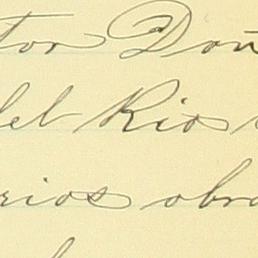 tor Don
del Rio
rios obra